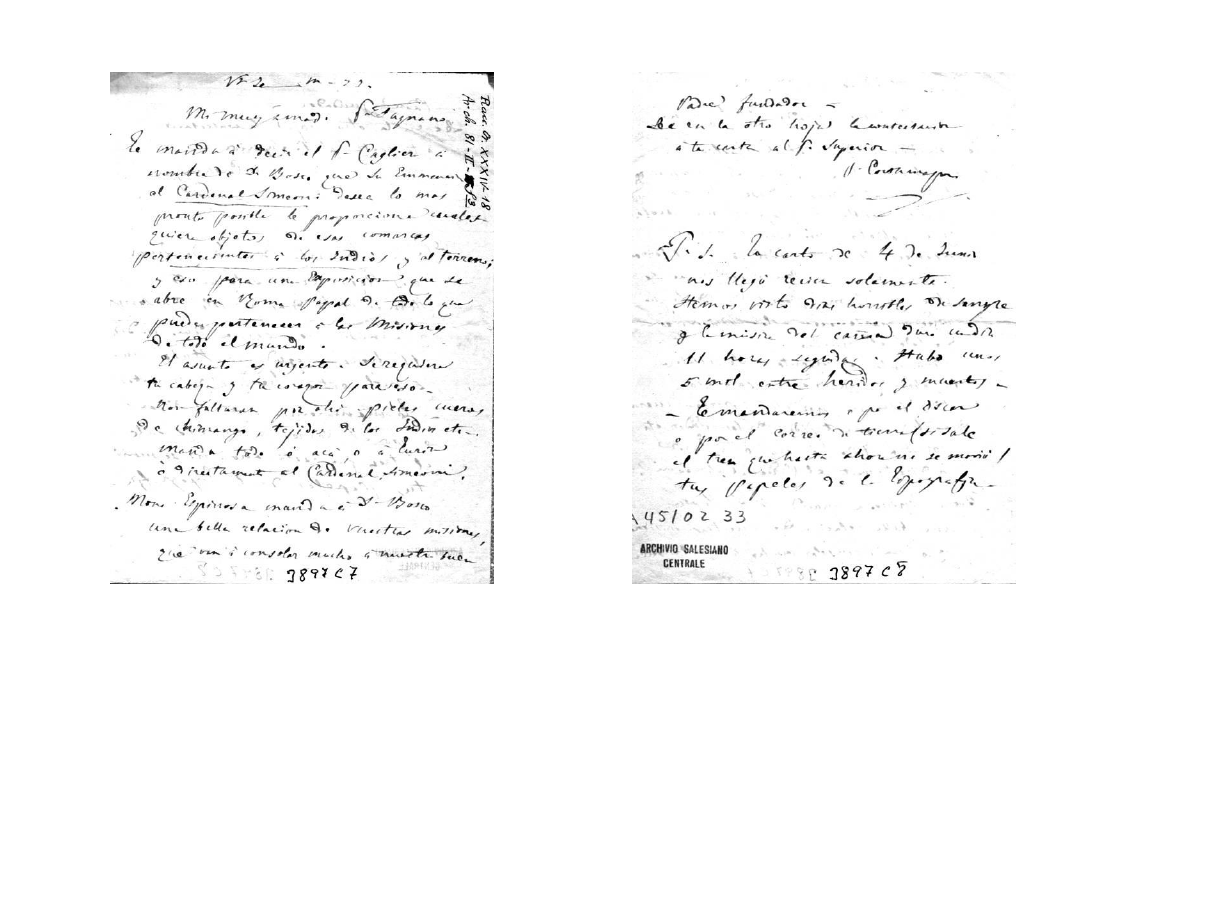 Mi muy amado S. Fagnano
Te manda á decir el S. Caglier á
nombre de D. Bosco que Su Eminencia
el Cardenal Simeoni desea lo mas
pronto posible le proporcione cuales
quiera objetos de esas comarcas
pertenecientes á los Indios y al terreno;
y eso para una Exposicion que se
abre en Roma Papal de todo lo que
puede pertenecer á las Misiones
de todo el mundo.
El asunto es urgente. Se requiere
tu cabeza y tu corazon para eso.
Non faltaran por ahi pieles cueros
de chimango, tejidos de los Indios etc.
manda todo ó acá, o á Turin
ó directament al Cardenal Simeoni.
Mons. Espinosa manda á D. Bosco
una bella relacion de vuestras misiones,
que van á consolar mucho á nuestro buen
Racc. O. XXXIV-18
Arch. 81-II-
3897 C7
Padre fundador —
Lee en la otra hoja la contestacion
a tu carta al S. Superior —
S. Costamagna
P. S. La carta de 4 de Junio
nos llegó recien solamente.
Hemos visto dias horribles de sangre
y la musica del cañon duró
11 horas seguidas. Hubo unos
5 mil entre heridos y muertos —
— Te mandaremos o por el
o por el correo de tierra (si sale
el tren que hasta ahora no se movió)
tus papeles de la Topografia —
A 45/02 33
ARCHIVIO SALESIANO
CENTRALE
3897 C8